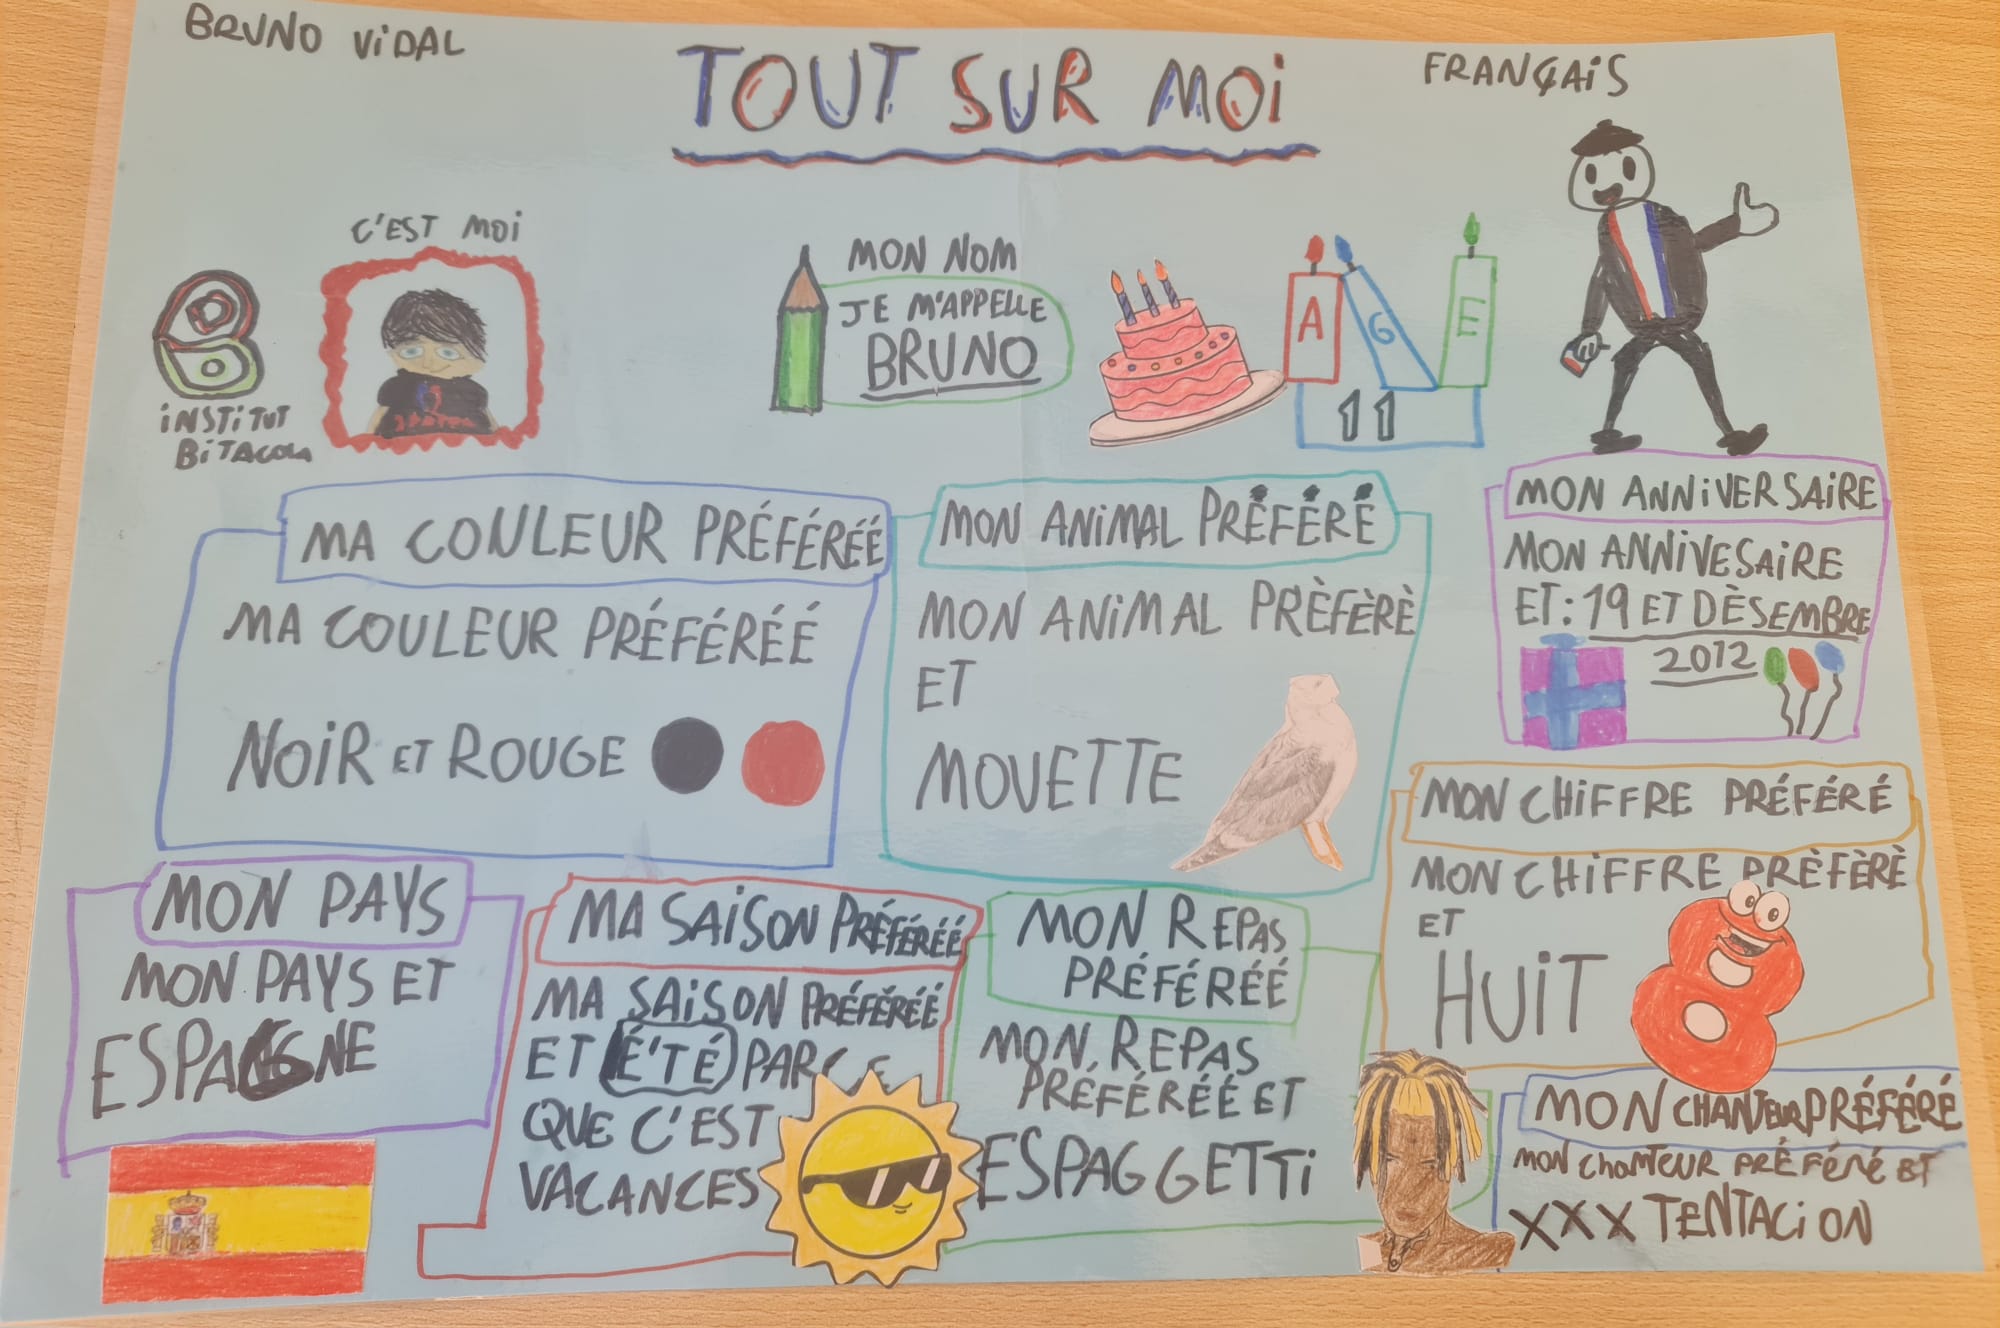 BRUNO ViDAL
TOUT SUR MOi
FRANÇAiS
C'EST MOi
iNSTiTUT
BiTACOLA
MON NOM
JE M'APPELLE
BRUNO
AGE
11
MA COULEUR PRÉFÉRÉÉ
MA COULEUR PRÉFÉRÉÉ
NOiR ET ROUGE
MON ANiMAL PRÉFÉRÉ
MON ANiMAL PRÈFÈRÈ
ET
MOUETTE
MON ANNiVERSAiRE
MON ANNiVESAiRE
ET: 19 ET DÈSEMBRE
2012
MON CHiFFRE PRÉFÉRÉ
MON CHiFFRE PRÈFÈRÈ
ET
HUiT
8
MON PAYS
MON PAYS ET
ESPAGNE
MA SAiSON PRÉFÉRÉÉ
MA SAiSON PRÉFÉRÉÉ
ET É'TÉ PARCE
QUE C'EST
VACANCES
MON REPAS
PRÉFÉRÉÉ
MON REPAS
PRÉFÉRÉÉ ET
ESPAGGETTi
MON CHANTEUR PRÉFÉRÉ
MON CHANTEUR PRÉFÉRÉ ET
XXX TENTACiON